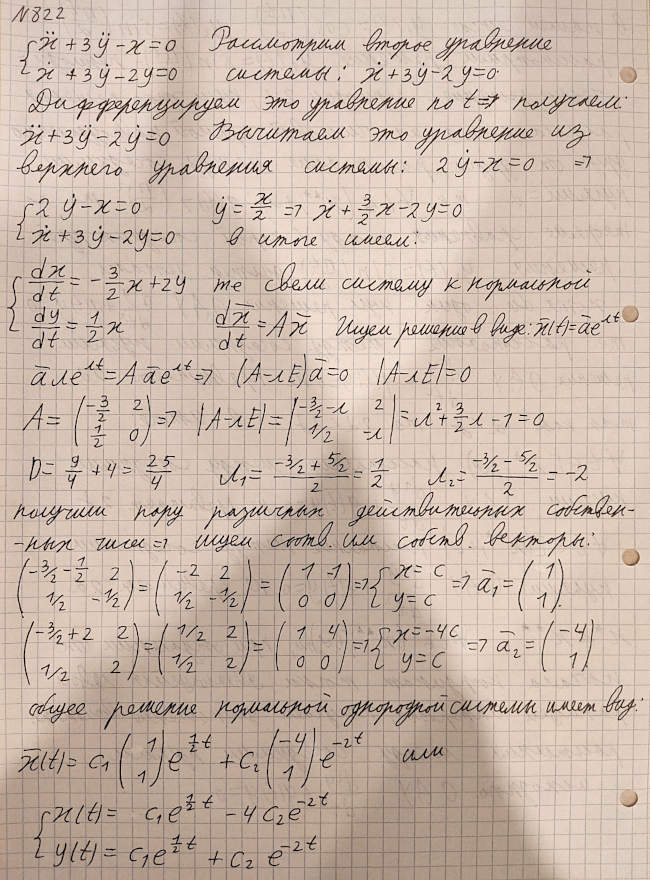 N822
{ẍ + 3ÿ - x = 0 Рассмотрим второе уравнение
{ẋ + 3ẏ - 2y = 0 системы: ẋ + 3ẏ - 2y = 0
Дифференцируем это уравнение по t => получаем:
ẍ + 3ÿ - 2ẏ = 0 Вычитаем это уравнение из
верхнего уравнения системы: 2ẏ - x = 0 =>
{2ẏ - x = 0 ẏ = x/2 => ẋ + 3/2 x - 2y = 0
{ẋ + 3ẏ - 2y = 0 в итоге имеем:
{dx/dt = -3/2 x + 2y те свели систему к нормальной
{dy/dt = 1/2 x dx̄/dt = Ax̄ Ищем решение в виде: x̄(t) = āe^λt
āλe^λt = Aāe^λt => (A - λE)ā = 0 |A - λE| = 0
A = (-3/2 2; 1/2 0) => |A - λE| = |-3/2 - λ 2; 1/2 -λ| = λ² + 3/2 λ - 1 = 0
D = 9/4 + 4 = 25/4 λ₁ = (-3/2 + 5/2)/2 = 1/2 λ₂ = (-3/2 - 5/2)/2 = -2
получили пару различных действительных собствен-
-ных чисел => ищем соотв. им собств. векторы:
(-3/2 - 1/2 2; 1/2 -1/2) = (-2 2; 1/2 -1/2) = (1 -1; 0 0) => {x = c; y = c => ā₁ = (1; 1).
(-3/2 + 2 2; 1/2 2) = (1/2 2; 1/2 2) = (1 4; 0 0) => {x = -4c; y = c => ā₂ = (-4; 1)
общее решение нормальной однородной системы имеет вид:
x̄(t) = c₁(1; 1)e^(1/2 t) + c₂(-4; 1)e^(-2t) или
{x(t) = c₁e^(1/2 t) - 4c₂e^(-2t)
{y(t) = c₁e^(1/2 t) + c₂e^(-2t)